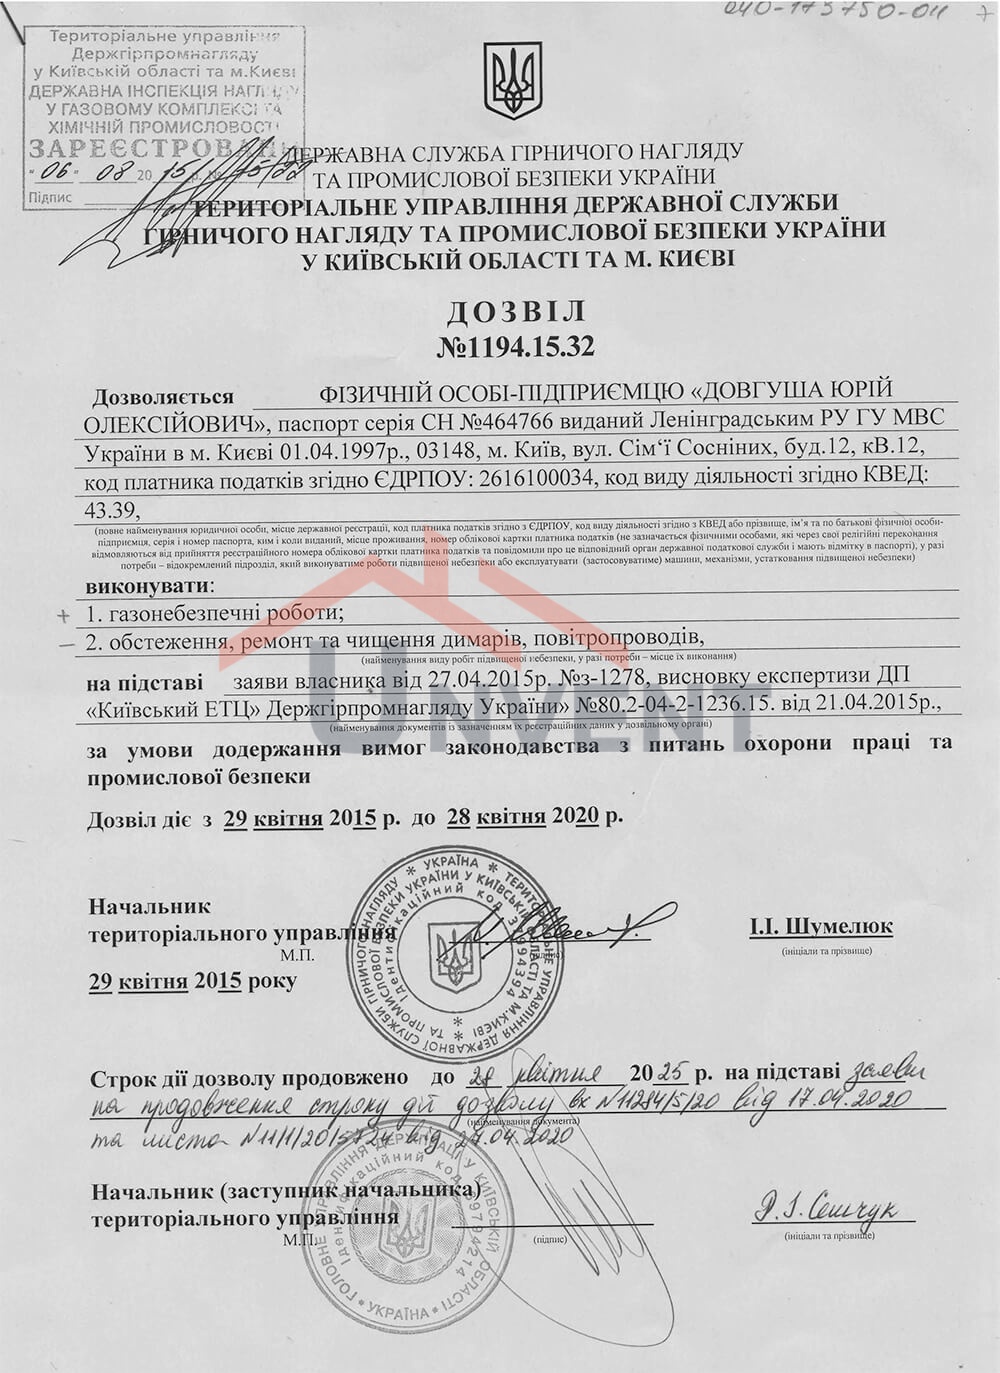 040-173750-04
Територіальне управління
Держгірпромнагляду
у Київській області та м.Києві
ДЕРЖАВНА ІНСПЕКЦІЯ НАГЛЯДУ
У ГАЗОВОМУ КОМПЛЕКСІ ТА
ХІМІЧНІЙ ПРОМИСЛОВОСТІ
ЗАРЕЄСТРОВАНО
"06" 08 2015 р. №
Підпис
ДЕРЖАВНА СЛУЖБА ГІРНИЧОГО НАГЛЯДУ
ТА ПРОМИСЛОВОЇ БЕЗПЕКИ УКРАЇНИ
ТЕРИТОРІАЛЬНЕ УПРАВЛІННЯ ДЕРЖАВНОЇ СЛУЖБИ
ГІРНИЧОГО НАГЛЯДУ ТА ПРОМИСЛОВОЇ БЕЗПЕКИ УКРАЇНИ
У КИЇВСЬКІЙ ОБЛАСТІ ТА М. КИЄВІ
ДОЗВІЛ
№1194.15.32
Дозволяється ФІЗИЧНІЙ ОСОБІ-ПІДПРИЄМЦЮ «ДОВГУША ЮРІЙ
ОЛЕКСІЙОВИЧ», паспорт серія СН №464766 виданий Ленінградським РУ ГУ МВС
України в м. Києві 01.04.1997р., 03148, м. Київ, вул. Сім‘ї Сосніних, буд.12, кВ.12,
код платника податків згідно ЄДРПОУ: 2616100034, код виду діяльності згідно КВЕД:
43.39,
(повне найменування юридичної особи, місце державної реєстрації, код платника податків згідно з ЄДРПОУ, код виду діяльності згідно з КВЕД або прізвище, ім’я та по батькові фізичної особи-
підприємця, серія і номер паспорта, ким і коли виданий, місце проживання, номер облікової картки платника податків (не зазначається фізичними особами, які через свої релігійні переконання
відмовляються від прийняття реєстраційного номера облікової картки платника податків та повідомили про це відповідний орган державної податкової служби і мають відмітку в паспорті), у разі
потреби – відокремлений підрозділ, який виконуватиме роботи підвищеної небезпеки або експлуатувати (застосовуватиме) машини, механізми, устатковання підвищеної небезпеки)
виконувати:
+ 1. газонебезпечні роботи;
– 2. обстеження, ремонт та чищення димарів, повітропроводів,
(найменування виду робіт підвищеної небезпеки, у разі потреби – місце їх виконання)
на підставі заяви власника від 27.04.2015р. №з-1278, висновку експертизи ДП
«Київський ЕТЦ» Держгірпромнагляду України» №80.2-04-2-1236.15. від 21.04.2015р.,
(найменування документів із зазначенням їх реєстраційних даних у дозвільному органі)
UNVENT
за умови додержання вимог законодавства з питань охорони праці та
промислової безпеки
Дозвіл діє з 29 квітня 2015 р. до 28 квітня 2020 р.
Начальник
територіального управління
М.П.
(підпис)
І.І. Шумелюк
(ініціали та прізвище)
29 квітня 2015 року
УКРАЇНА * ТЕРИТОРІАЛЬНЕ УПРАВЛІННЯ ДЕРЖАВНОЇ СЛУЖБИ ГІРНИЧОГО НАГЛЯДУ *
ТА ПРОМИСЛОВОЇ БЕЗПЕКИ УКРАЇНИ У КИЇВСЬКІЙ ОБЛАСТІ ТА М.КИЄВІ *
Ідентифікаційний код 37994394 *
Строк дії дозволу продовжено до 28 квітня 2025 р. на підставі заяви
на продовження строку дії дозволу вх №11284/5/20 від 17.04.2020
(найменування документа)
та листа від 27.04.2020
Начальник (заступник начальника)
територіального управління
М.П.
(підпис)
(ініціали та прізвище)
ГОЛОВНЕ УПРАВЛІННЯ ДЕРЖПРАЦІ У КИЇВСЬКІЙ ОБЛАСТІ * УКРАЇНА *
Ідентифікаційний код 39794214